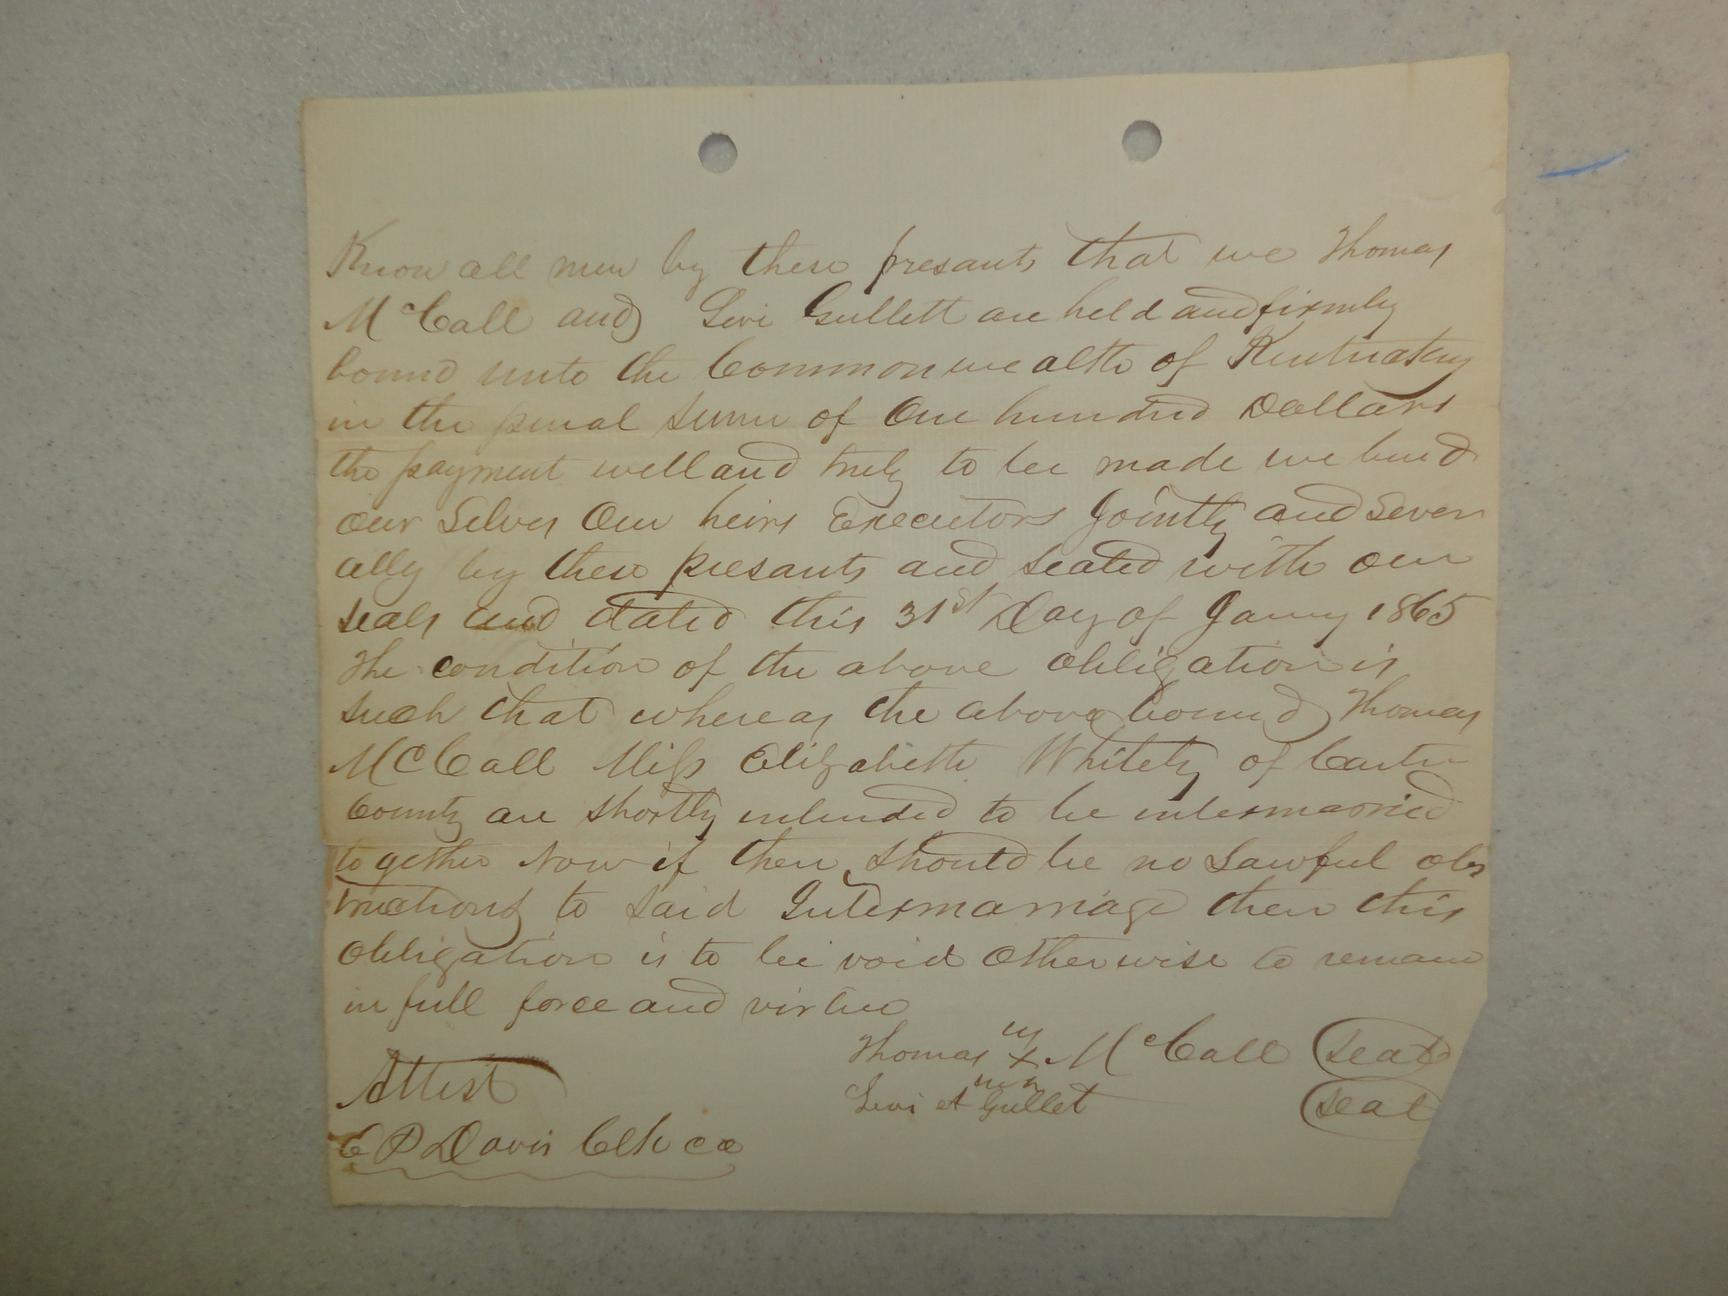 Know all men by these presants that we Thomas
McCall and Levi Gullett are held and firmly
bound unto the Commonwealth of Kentuckey
in the penal sum of One hundred Dollars
the payment well and truly to be made we bind
our Selves Our heirs Executors Jointly and Sever
ally by these presants and sealed with our
seals and dated this 31st Day of Jany 1865
The condition of the above obligation is
such that whereas the above bound Thomas
McCall Miss Elizabeth Whitely of Carter
County are shortly intended to be intermarried
together Now if there should be no Lawful obs
tructions to said Intermarriage then this
obligation is to be void otherwise to remain
in full force and virtue
Thomas X McCall Seal
Levi Gullet Seal
Attest
E P Davis Clk